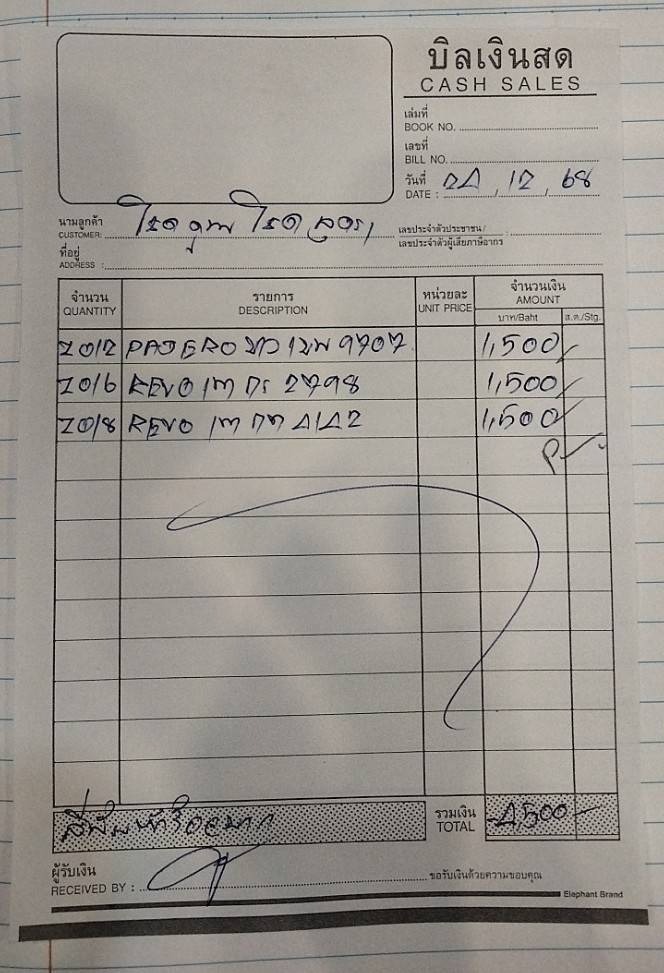 บิลเงินสด
CASH SALES
เล่มที่
BOOK NO.
เลขที่
BILL NO.
วันที่
DATE : 24, 12, 68
นามลูกค้า
CUSTOMER:
เลขประจำตัวประชาชน /
เลขประจำตัวผู้เสียภาษีอากร :
ที่อยู่
ADDRESS :
จำนวน รายการ หน่วยละ จำนวนเงิน
QUANTITY DESCRIPTION UNIT PRICE AMOUNT
บาท/Baht ส.ต./Stg.
2012 PAJERO ขาว 9707 1,500
2016 REVO เทา 2798 1,500
2018 REVO เทา 4142 1,500
สี่พันห้าร้อยบาท รวมเงิน 4,500
TOTAL
ผู้รับเงิน
RECEIVED BY :
ขอรับเงินด้วยความขอบคุณ
Elephant Brand